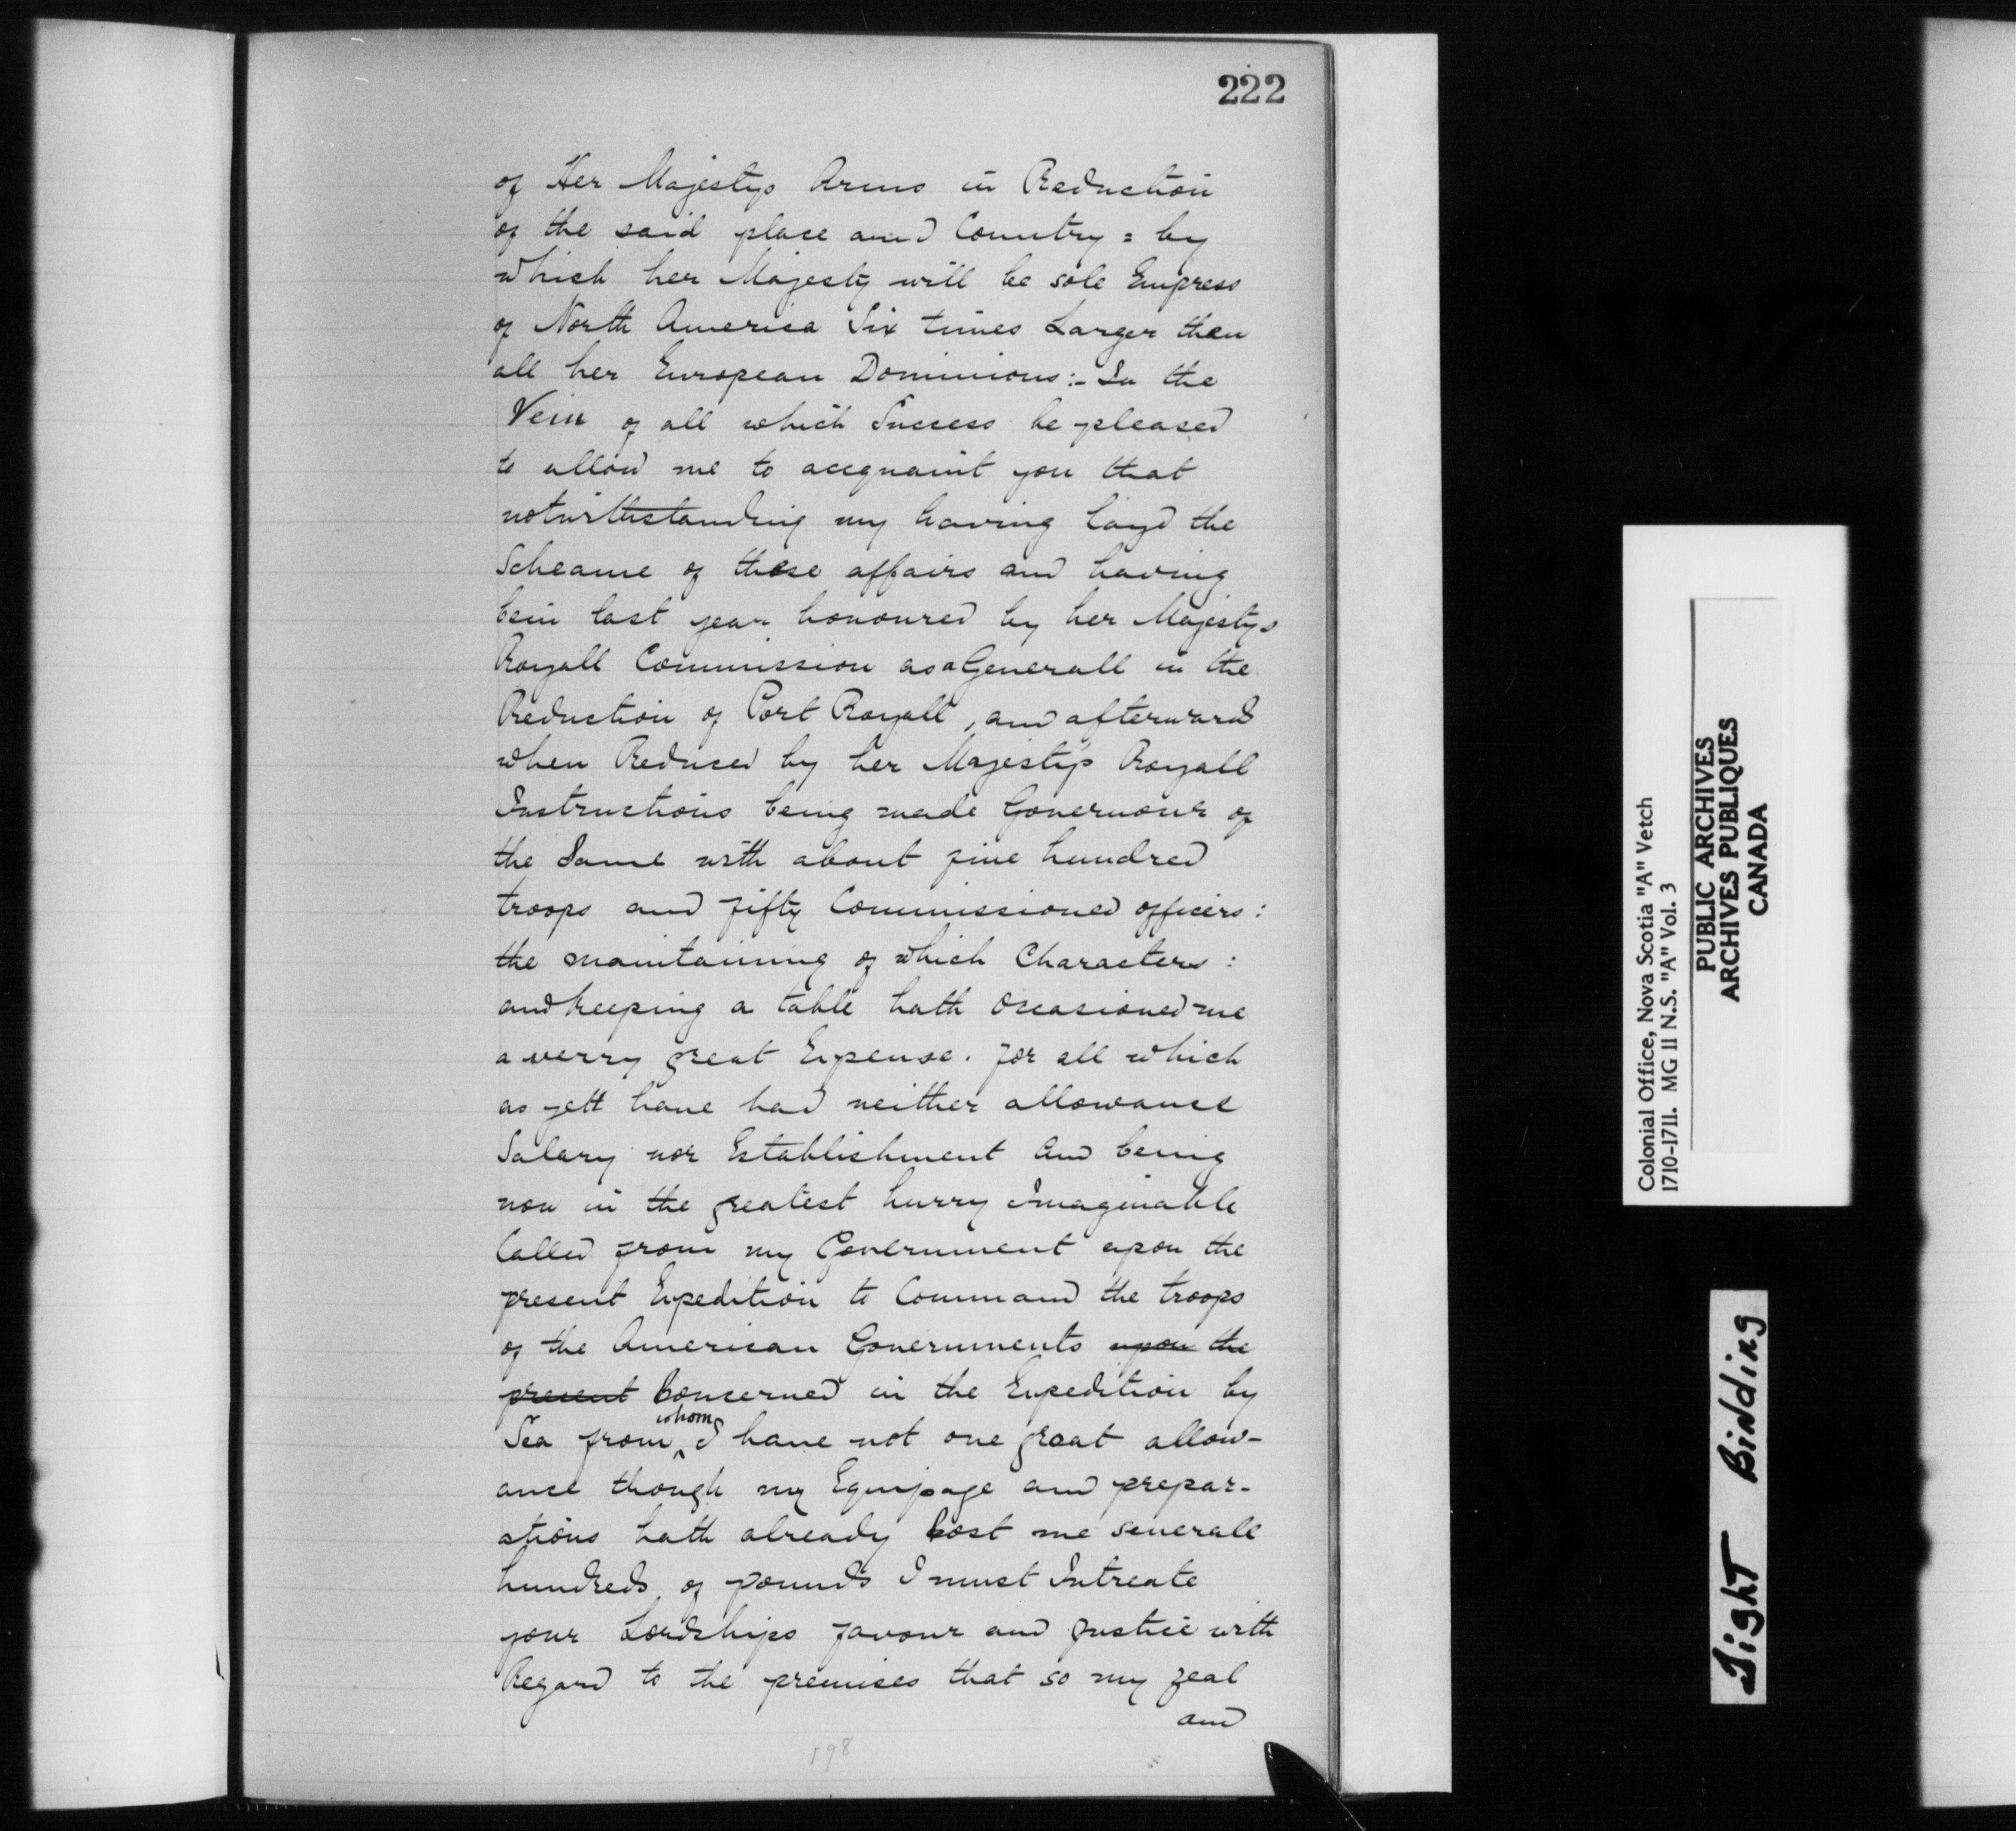 222
of Her Majestys Arms in Reduction
of the said place and Country = by
which her Majesty will be sole Empress
of North America Six times Larger then
all her European Dominions:- In the
Vein of all which Success be pleased
to allow me to acequaint you that
notwithstanding my having layd the
Scheame of these affairs and having
bein last year honoured by her Majestys
Royall Commission as a Generall in the
Reduction of Port Royall, and afterwards
when Reduced by her Majestys Royall
Instructions being made Governour of
the Same with about five hundred
troops and fifty Commissioned officers:
the maintaining of which Characters:
and keeping a table hath occasioned me
a verry great Expense. for all which
as yett have had neither allowance
Salary nor Establishment and being
now in the greatest hurry Imaginable
Called from my Government upon the
present Expedition to Command the troops
of the American Governments upon the
present Concerned in the Expedition by
Sea from whom I have not one groat allow-
ance though my Equipage and prepar-
ations hath already Cost me severall
hundreds of pounds I must Intreate
your Lordships favour and Justice with
Regard to the premises that so my zeal
and
198
Colonial Office, Nova Scotia "A" Vetch
1710-1711. MG 11 N.S. "A" Vol. 3
PUBLIC ARCHIVES
ARCHIVES PUBLIQUES
CANADA
Tight Binding